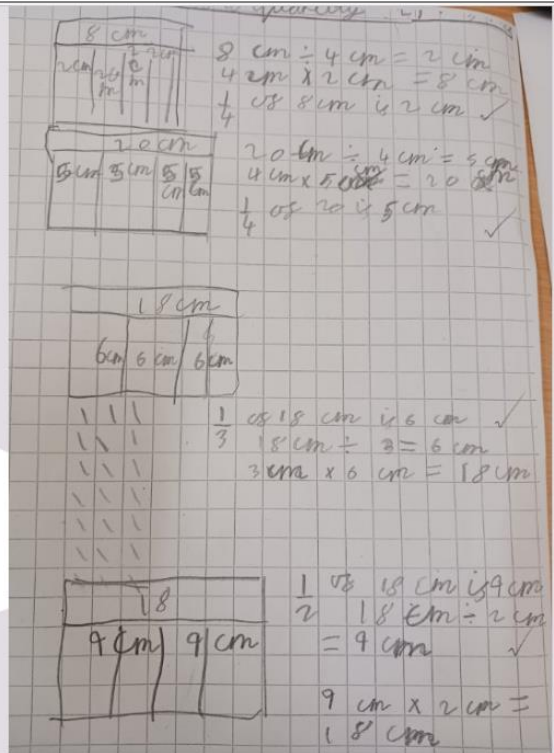 quantity
8 cm
2cm 2cm 2cm 2cm
8 cm ÷ 4 cm = 2 cm
4 cm x 2 cm = 8 cm
1/4 of 8cm is 2 cm ✓
20cm
5cm 5cm 5cm 5cm
20 cm ÷ 4 cm = 5 cm
4 cm x 5 cm = 20
1/4 of 20 is 5 cm
✓
18cm
6cm 6 cm 6 cm
1/3 of 18 cm is 6 cm ✓
18cm ÷ 3 = 6 cm
3 cm x 6 cm = 18 cm
18
9 cm 9 cm
1/2 of 18 cm is 9cm
18 cm ÷ 2 cm
= 9 cm ✓
9 cm x 2 cm =
18 cm